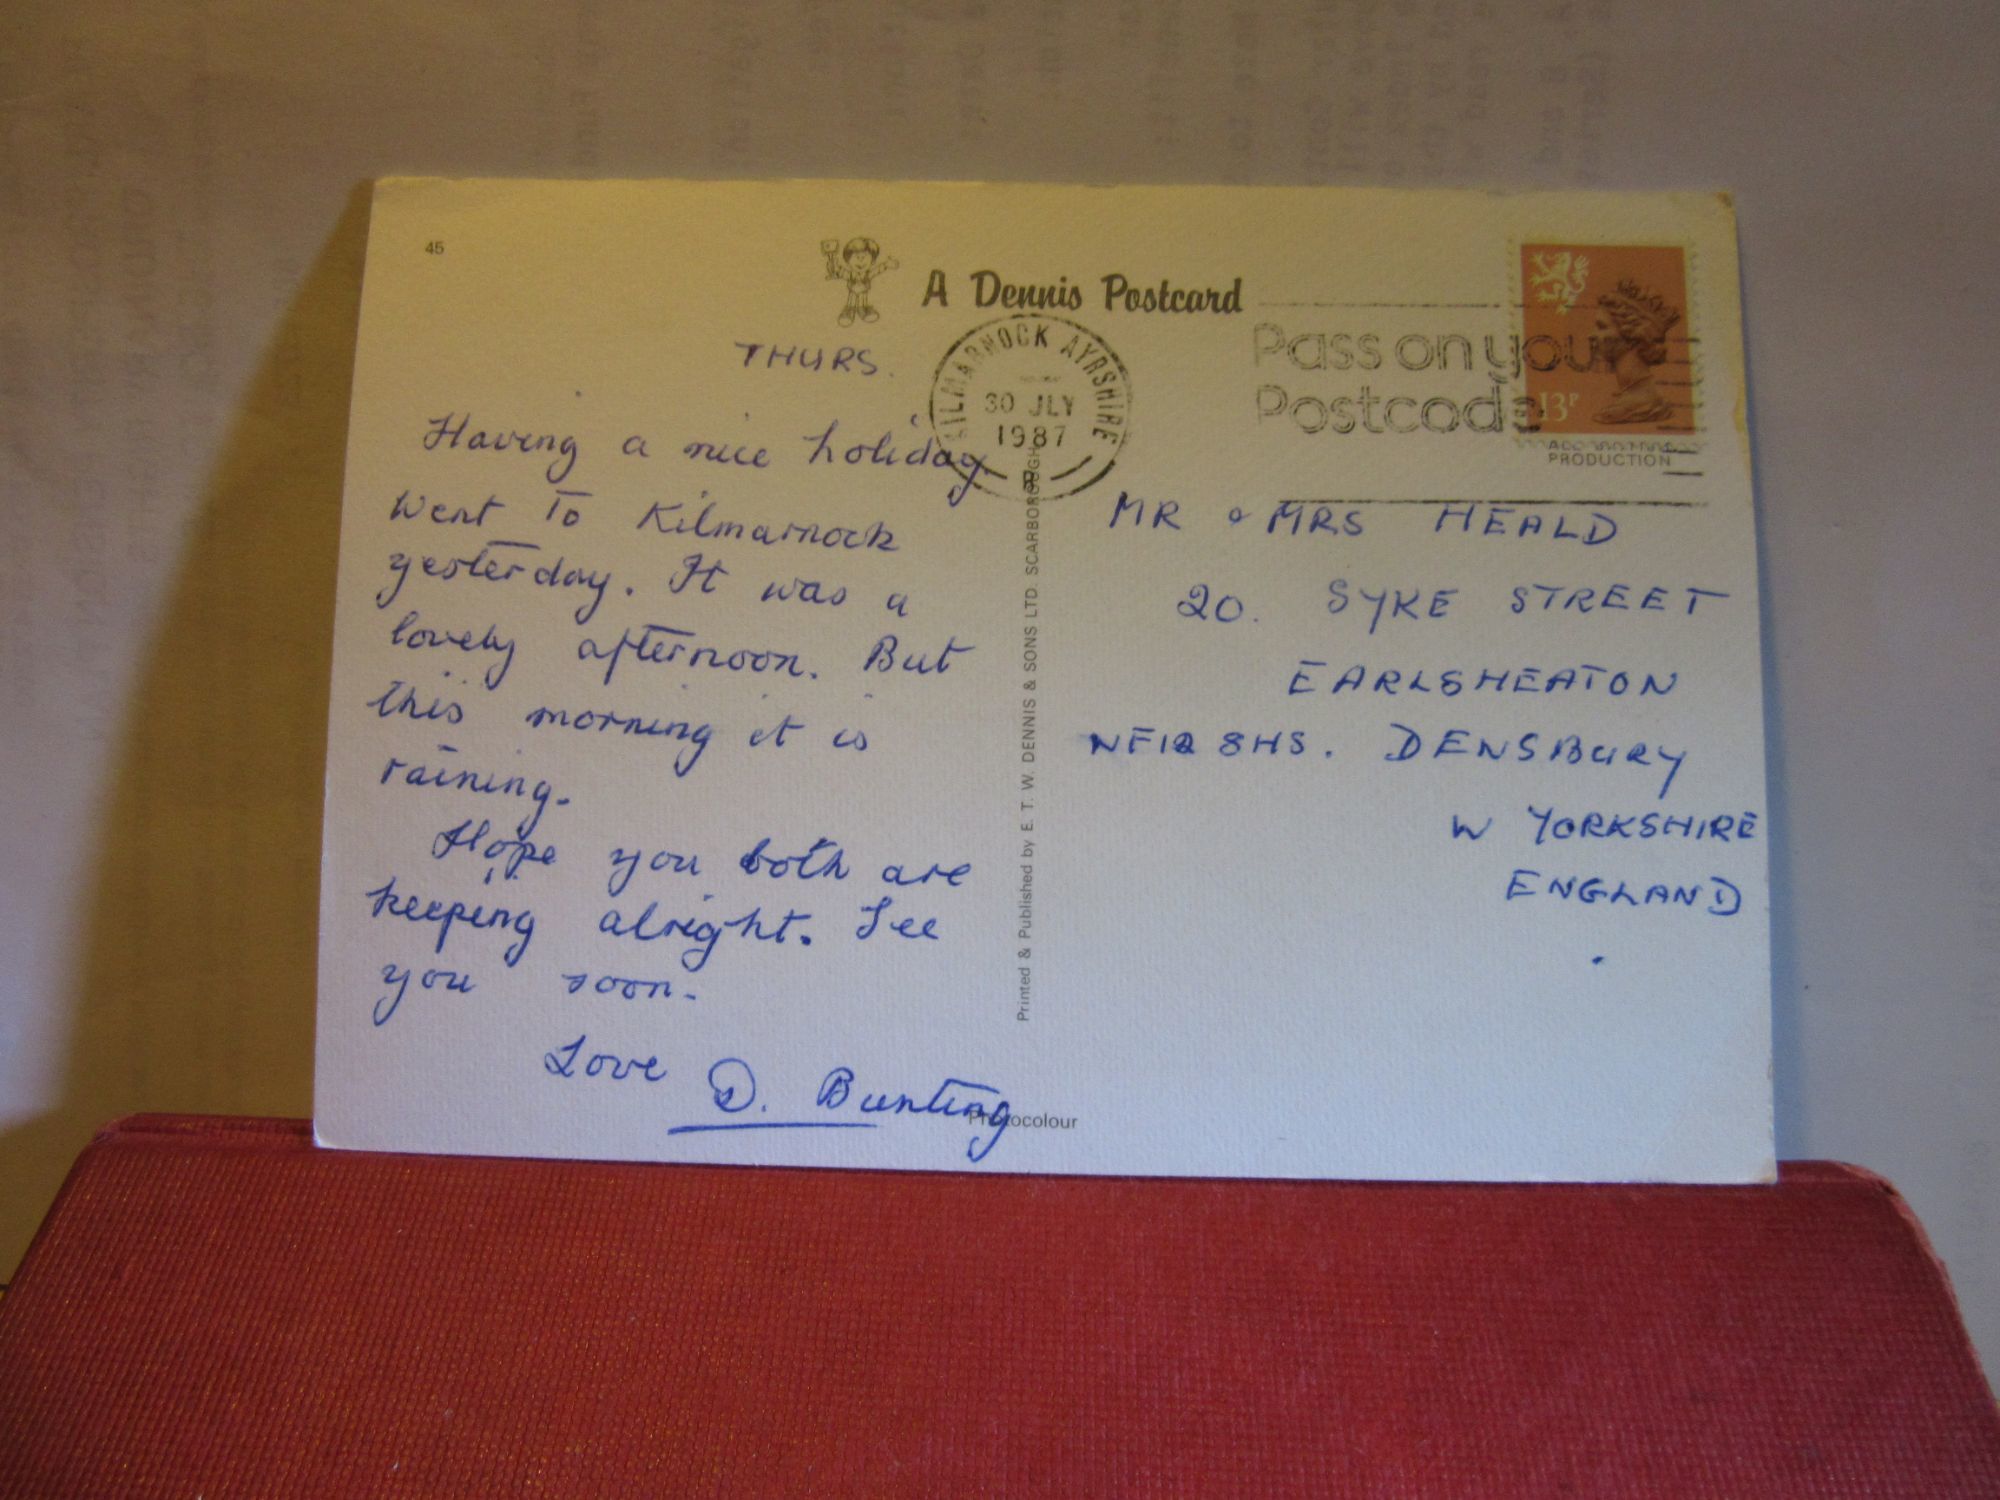 45
A Dennis Postcard
THURS.
Having a nice holiday
Went to Kilmarnock
yesterday. It was a
lovely afternoon. But
this morning it is
raining.
Hope you both are
keeping alright. See
you soon.
Love D. Bunting
Photocolour
Printed & Published by E. T. W. DENNIS & SONS LTD. SCARBOROUGH
KILMARNOCK AYRSHIRE
30 JLY
1987
Pass on your
Postcode
13P
PRODUCTION
MR & MRS HEALD
20. SYKE STREET
EARLSHEATON
8HS. DENSBURY
W YORKSHIRE
ENGLAND